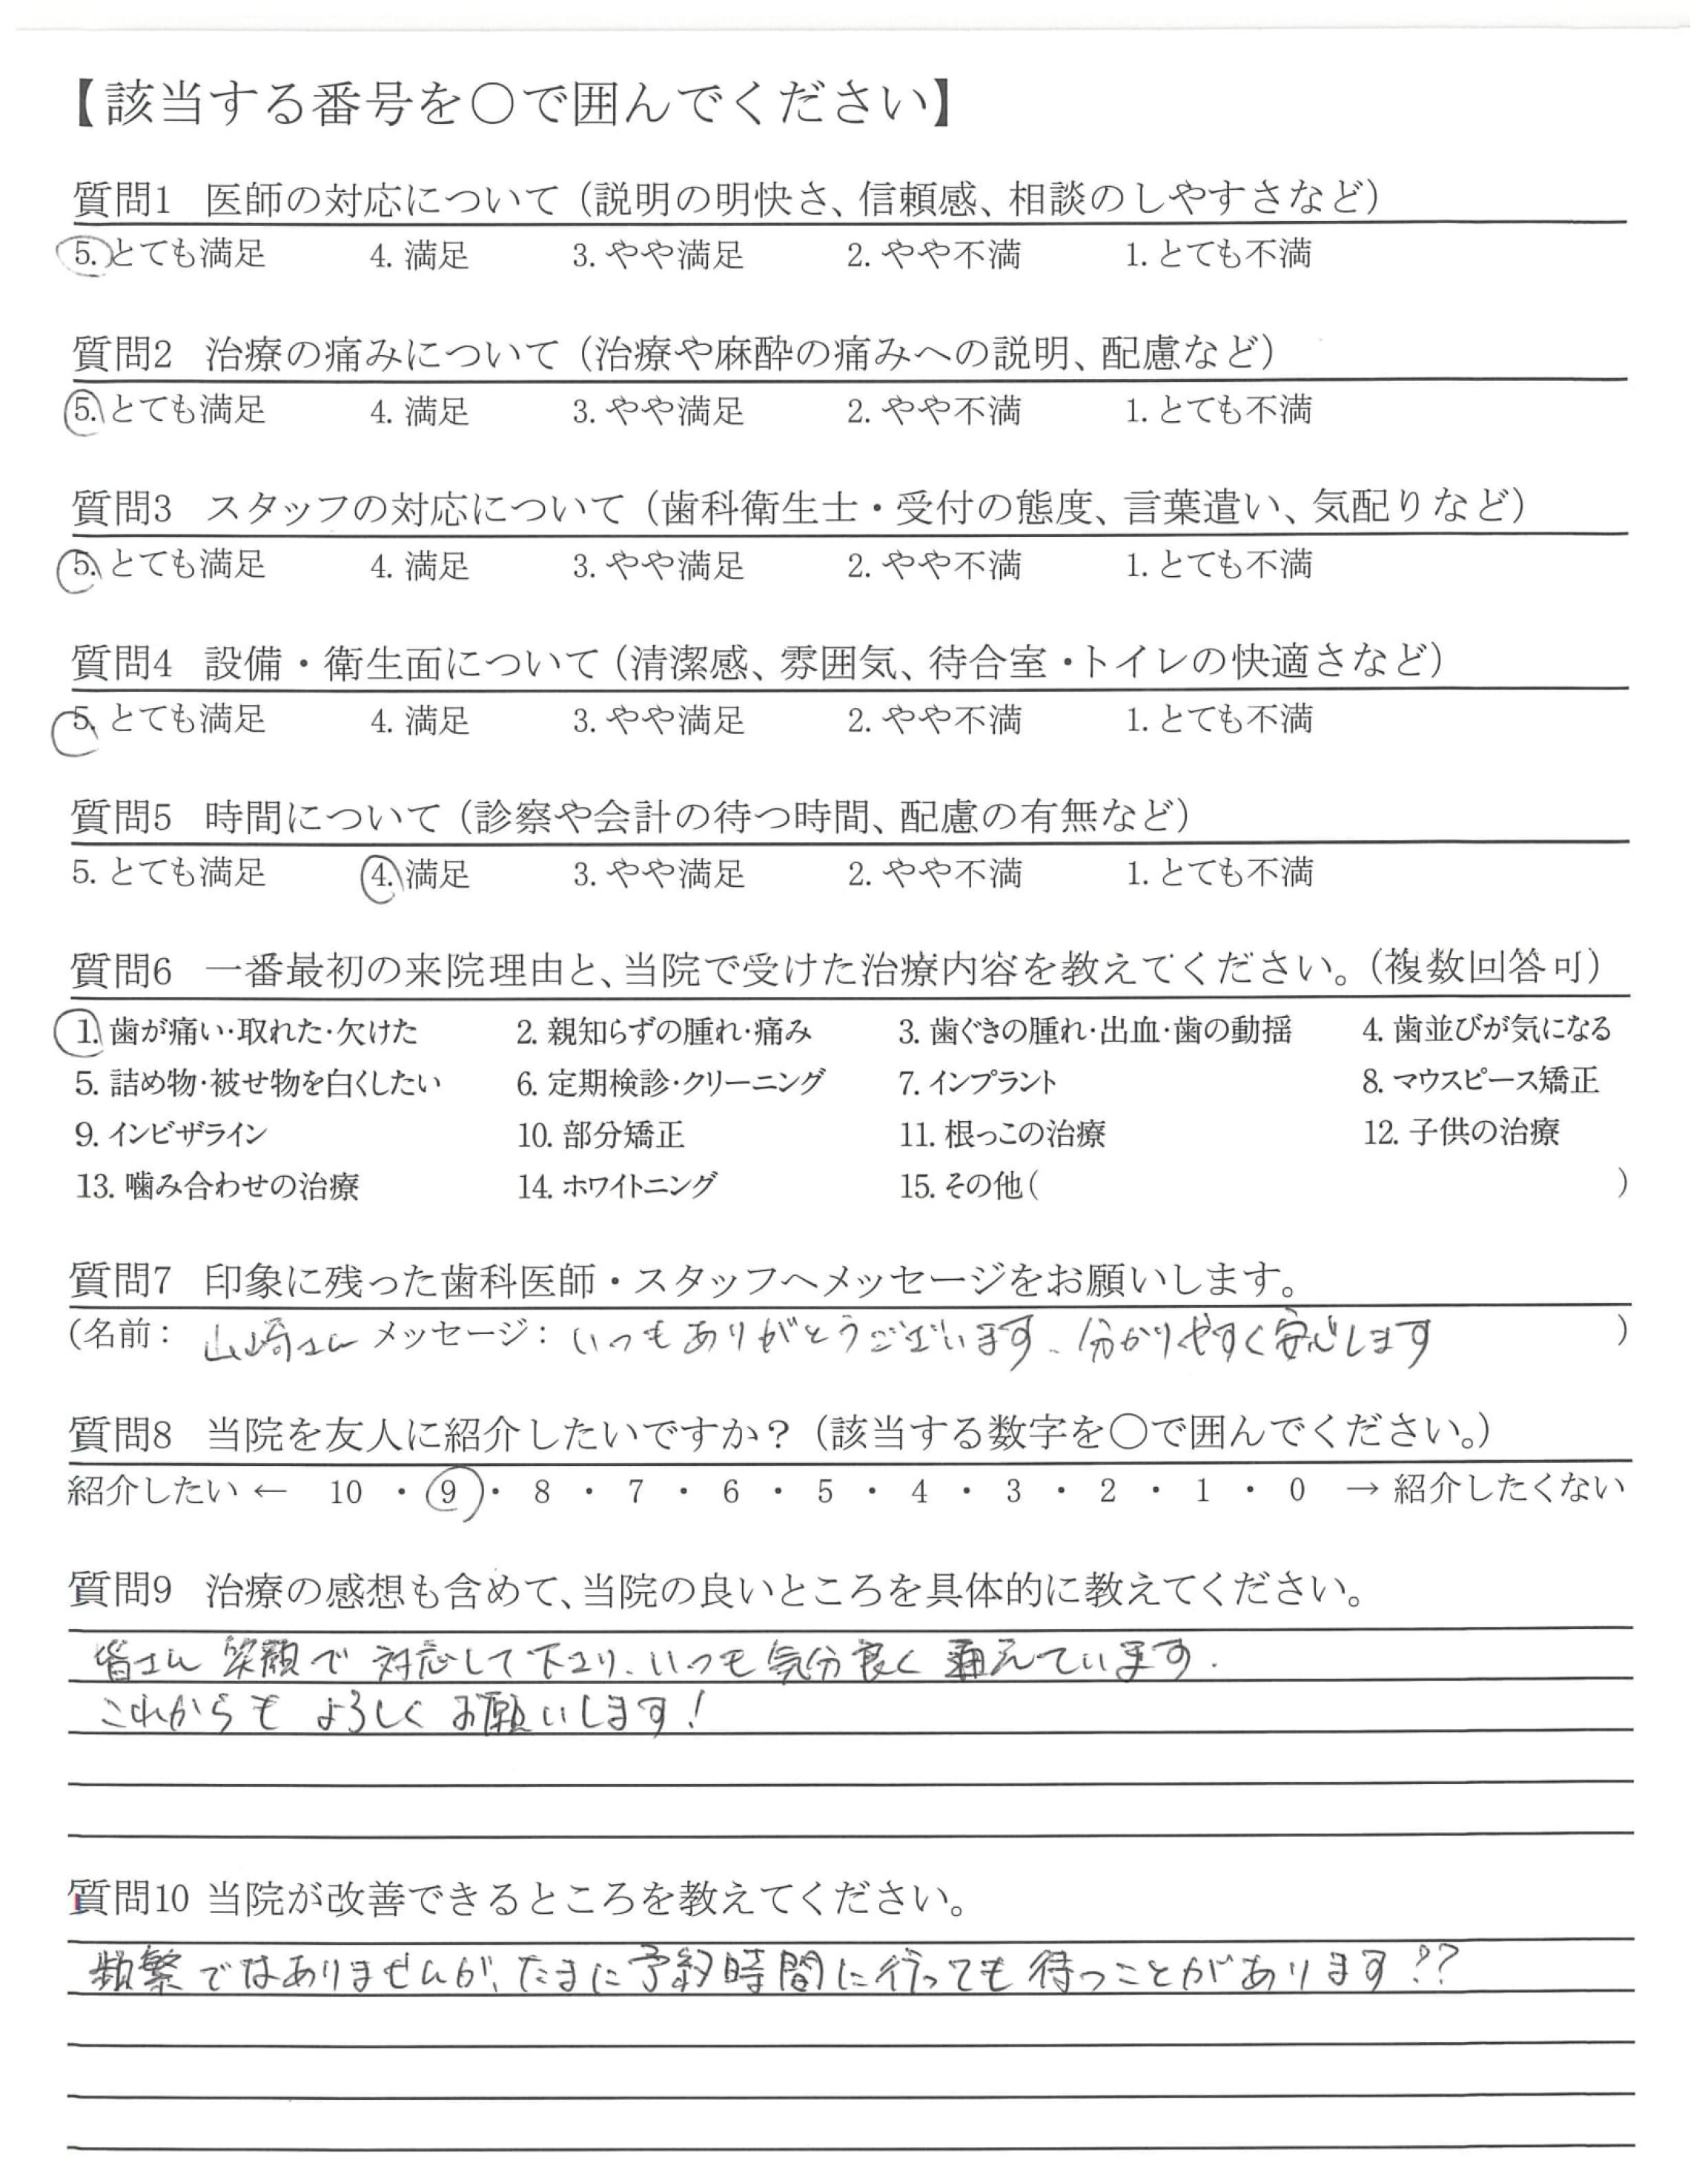 【該当する番号を〇で囲んでください】
質問1 医師の対応について（説明の明快さ、信頼感、相談のしやすさなど）
5. とても満足 4. 満足 3. やや満足 2. やや不満 1. とても不満
質問2 治療の痛みについて（治療や麻酔の痛みへの説明、配慮など）
5. とても満足 4. 満足 3. やや満足 2. やや不満 1. とても不満
質問3 スタッフの対応について（歯科衛生士・受付の態度、言葉遣い、気配りなど）
5. とても満足 4. 満足 3. やや満足 2. やや不満 1. とても不満
質問4 設備・衛生面について（清潔感、雰囲気、待合室・トイレの快適さなど）
5. とても満足 4. 満足 3. やや満足 2. やや不満 1. とても不満
質問5 時間について（診察や会計の待つ時間、配慮の有無など）
5. とても満足 4. 満足 3. やや満足 2. やや不満 1. とても不満
質問6 一番最初の来院理由と、当院で受けた治療内容を教えてください。（複数回答可）
1. 歯が痛い･取れた･欠けた 2. 親知らずの腫れ･痛み 3. 歯ぐきの腫れ･出血･歯の動揺 4. 歯並びが気になる
5. 詰め物･被せ物を白くしたい 6. 定期検診･クリーニング 7. インプラント 8. マウスピース矯正
9. インビザライン 10. 部分矯正 11. 根っこの治療 12. 子供の治療
13. 噛み合わせの治療 14. ホワイトニング 15. その他( )
質問7 印象に残った歯科医師・スタッフへメッセージをお願いします。
(名前： 山崎さん メッセージ： いつもありがとうございます、分かりやすく安心します )
質問8 当院を友人に紹介したいですか？（該当する数字を〇で囲んでください。）
紹介したい ← 10 ・ 9 ・ 8 ・ 7 ・ 6 ・ 5 ・ 4 ・ 3 ・ 2 ・ 1 ・ 0 → 紹介したくない
質問9 治療の感想も含めて、当院の良いところを具体的に教えてください。
皆さん 笑顔で 対応して下さり、いつも気分良く 通えています.
これからも よろしく お願いします!
質問10 当院が改善できるところを教えてください。
頻繁ではありませんが、たまに予約時間に行っても待つことがあります??